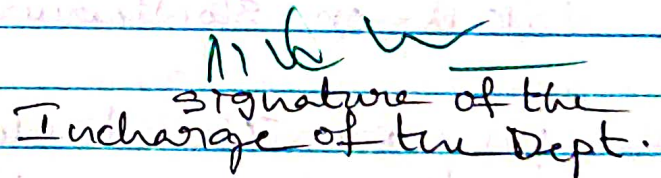 signature of the
Incharge of the Dept.